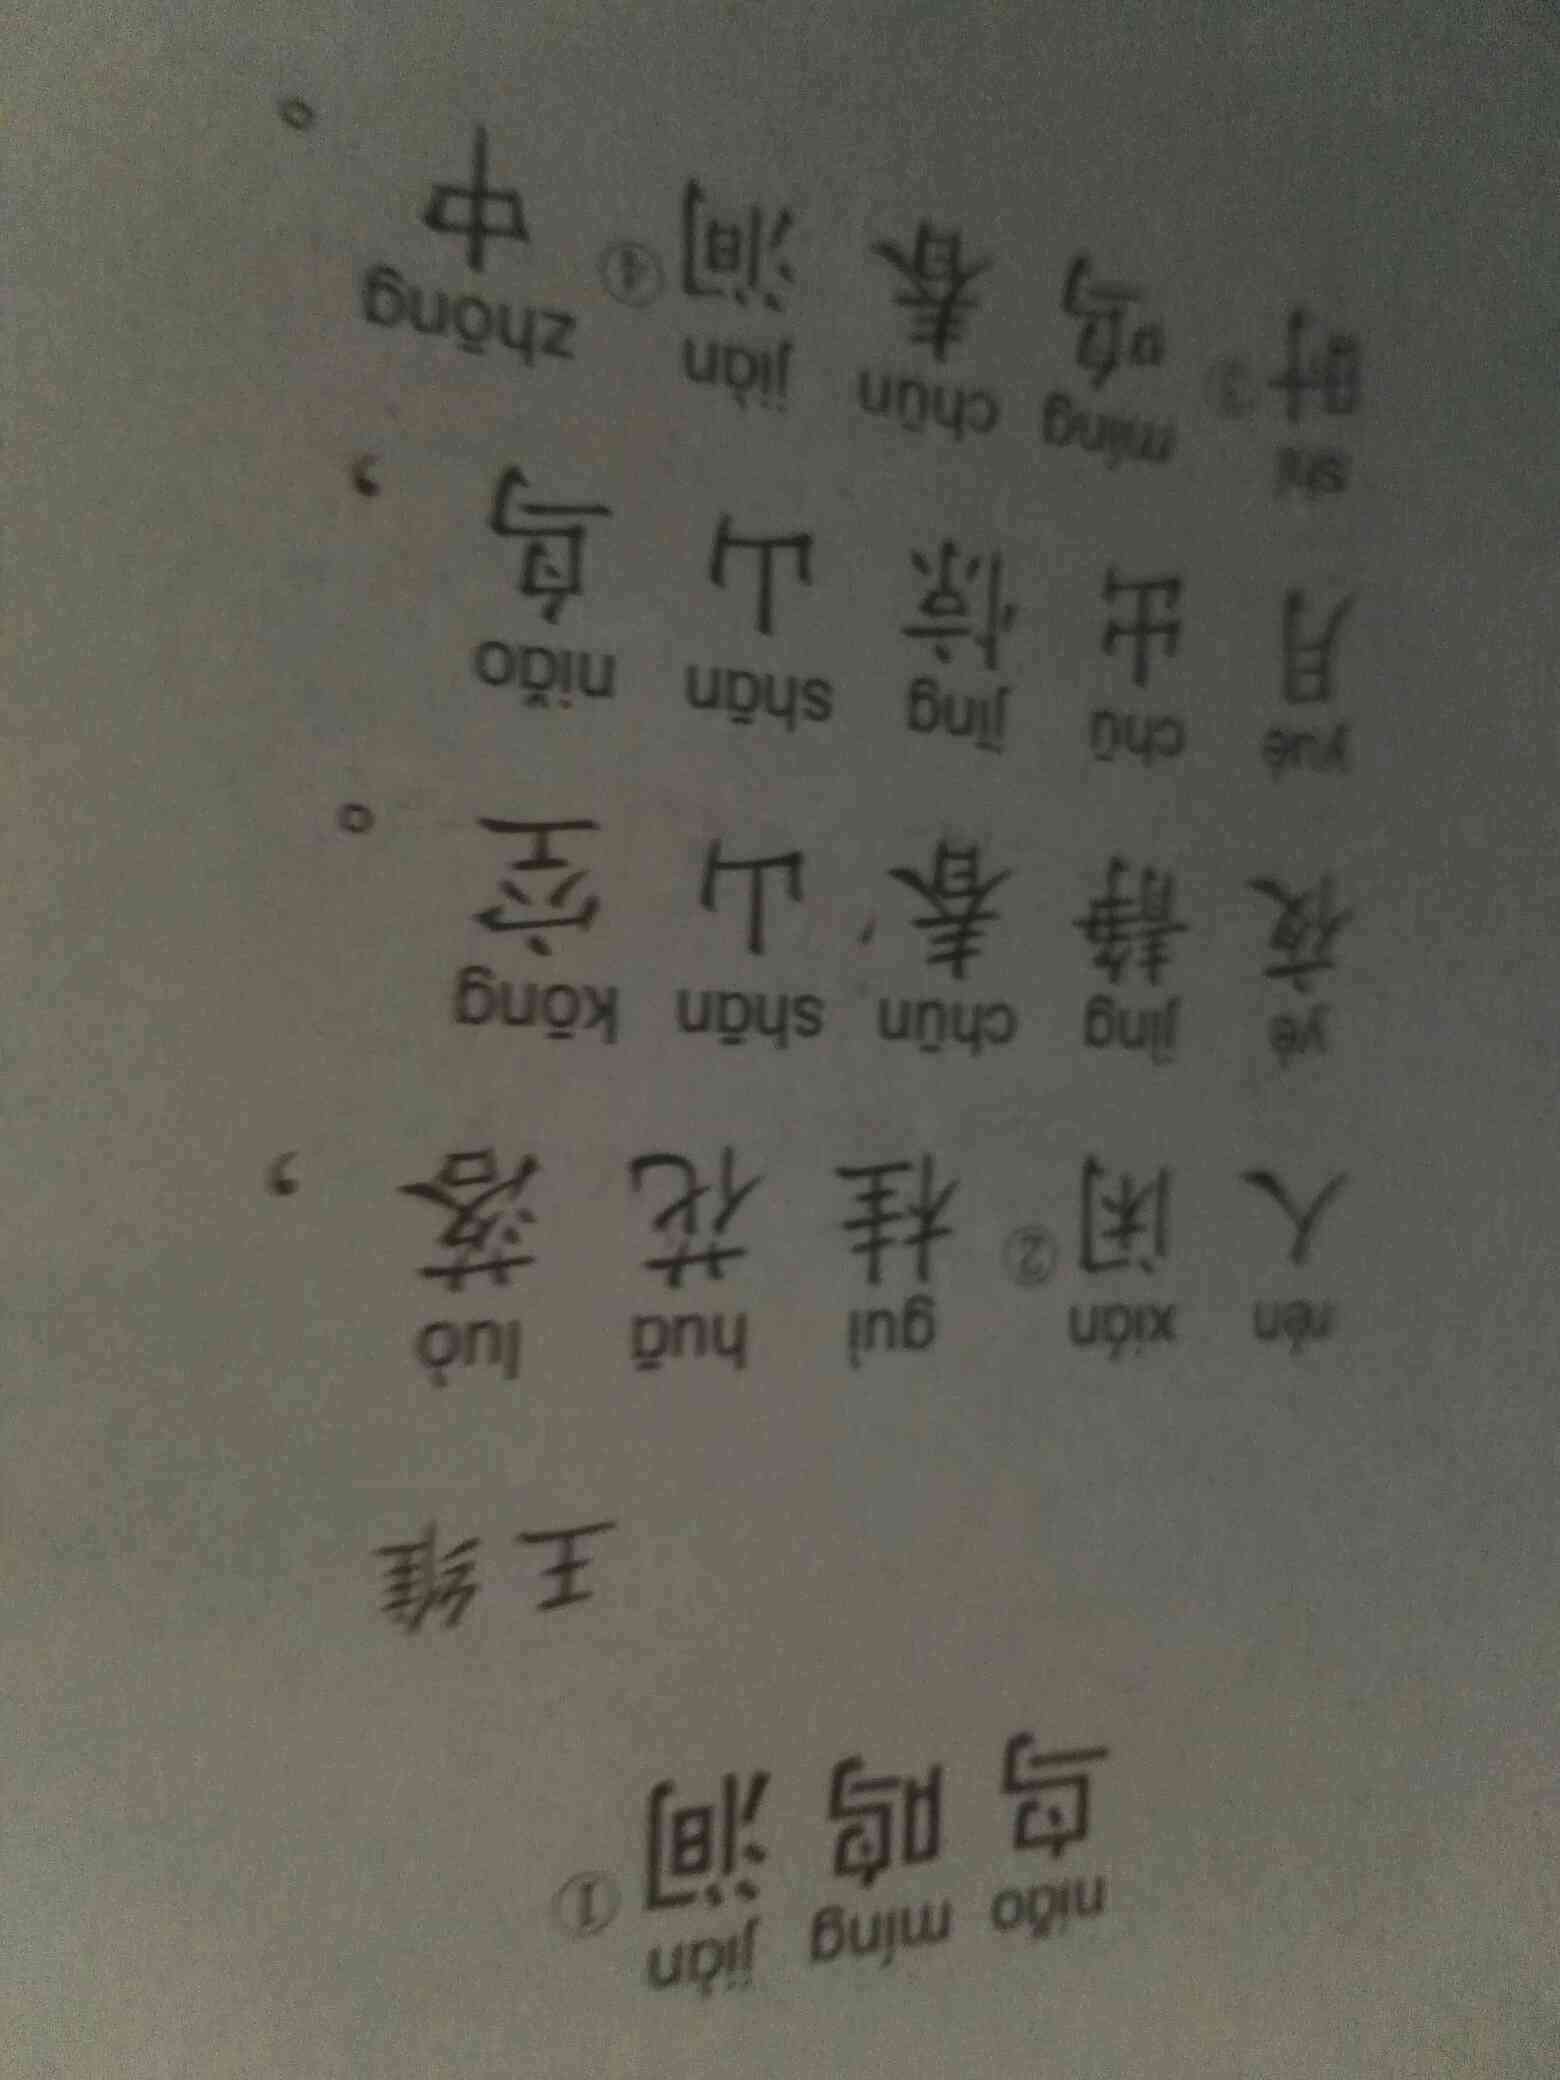 niǎo míng jiàn
鸟鸣涧①
王维
rén xián guì huā luò
人闲②桂花落，
yè jìng chūn shān kōng
夜静春山空。
yuè chū jīng shān niǎo
月出惊山鸟，
shí míng chūn jiàn zhōng
时③鸣春涧④中。